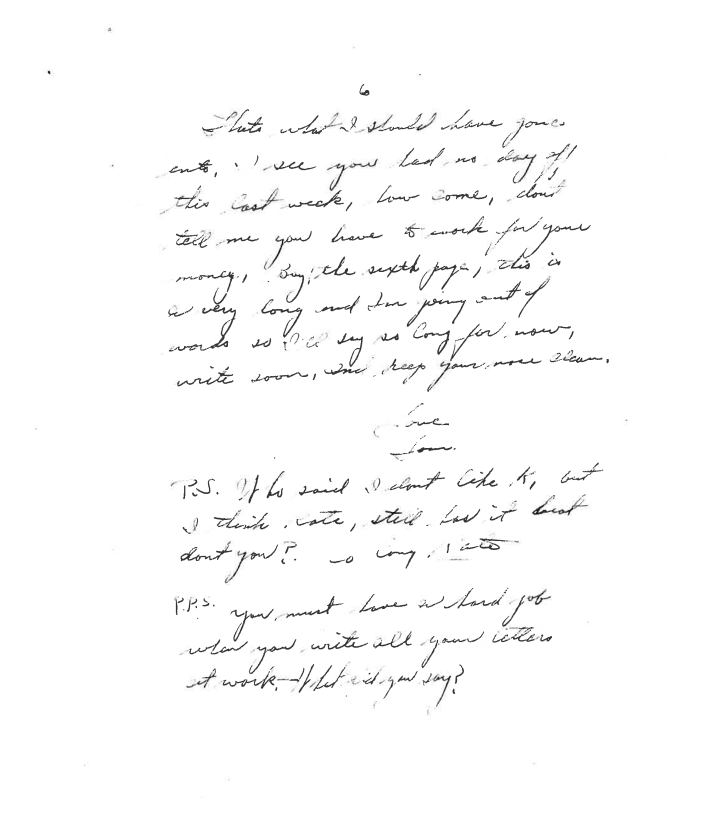 6
Thats what I should have gone
into, I see you had no day off
this last week, how come, dont
tell me you have to work for your
money, Boy, the sixth page, this is
a very long and I'm going out of
words so I'll say so long for now,
write soon, and keep your nose clean.
Love
Tom.
P.S. Who said I dont like K, but
I think Kate, still has it beat
dont you? So long Kate
P.P.S. you must have a hard job
when you write all your letters
at work. What did you say?